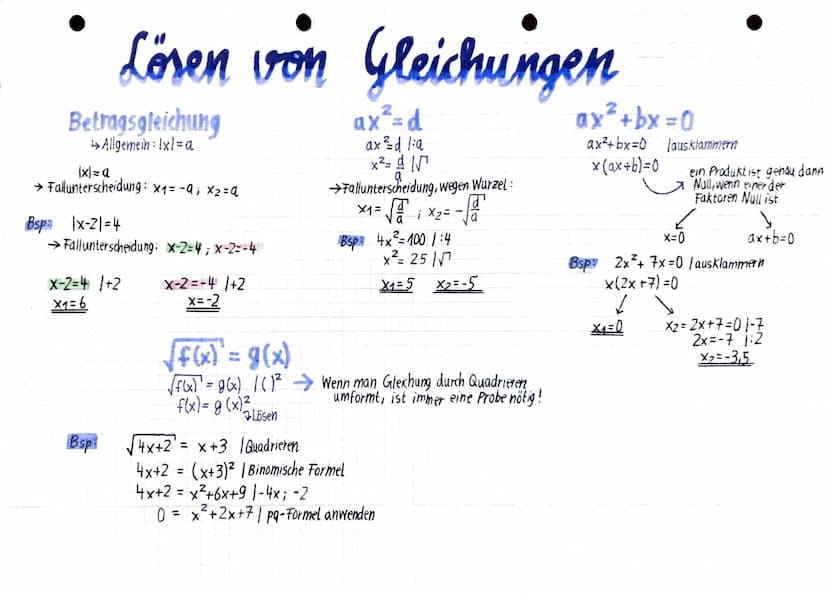 Lösen von Gleichungen
Betragsgleichung
↳ Allgemein: |x|=a
|x|=a
→ Fallunterscheidung: x₁=-a; x₂=a
Bsp: |x-2|=4
→ Fallunterscheidung: x-2=4; x-2=-4
x-2=4 |+2
x₁=6
x-2=-4 |+2
x=-2
ax²=d
ax²=d |:a
x²=d/a |√
→ Fallunterscheidung, wegen Wurzel:
x₁=√(d/a) ; x₂=-√(d/a)
Bsp: 4x²=100 |:4
x²=25 |√
x₁=5 x₂=-5
ax²+bx=0
ax²+bx=0 |ausklammern
x(ax+b)=0
ein Produkt ist genau dann
Null, wenn einer der
Faktoren Null ist
x=0 ax+b=0
Bsp: 2x²+7x=0 |ausklammern
x(2x+7)=0
x₁=0
x₂=2x+7=0 |-7
2x=-7 |:2
x₂=-3,5
√f(x) = g(x)
√f(x) = g(x) |( )²
f(x)=g(x)²
↳ Lösen
→ Wenn man Gleichung durch Quadrieren
umformt, ist immer eine Probe nötig!
Bsp: √4x+2 = x+3 |Quadrieren
4x+2 = (x+3)² |Binomische Formel
4x+2 = x²+6x+9 |-4x; -2
0 = x²+2x+7 | pq-Formel anwenden